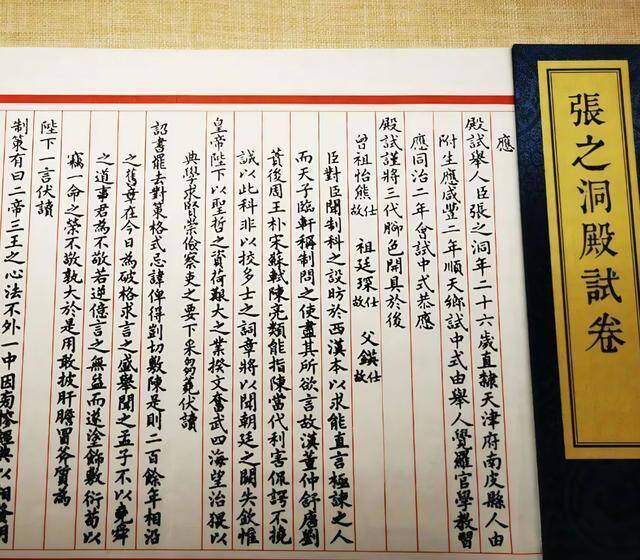 張之洞殿試卷
應
殿試舉人臣張之洞年二十六歲直隸天津府南皮縣人由
附生應咸豐二年順天鄉試中式由舉人覺羅官學教習
應同治二年會試中式恭應
殿試謹將三代腳色開具於後
曾祖怡熊仕故 祖廷琛仕故 父鍈仕故
臣對臣聞制科之設昉於西漢本以求能直言極諫之人
而天子臨軒稱制問之使盡其所欲言故漢董仲舒唐劉
蕡後周王朴宋蘇軾陳亮類能指陳當代利害侃諤不撓
誠以此科非以拔多士之詞章將以聞朝廷之闕失欽惟
皇帝陛下以聖哲之資荷艱大之業揆文奮武四海望治猥以
典學求賢崇儉察吏之要下采芻蕘伏讀
詔書罷去對策格式忌諱俾得剴切敷陳是則二百餘年相沿
之舊毋在今日為破格求言之盛舉聞之孟子不以堯舜
之道事君為不敬若逆億言之無益而遂塗飾敷衍苟以
竊一命之榮不敬孰大於是用敢披肝膽冒斧質為
陛下一言伏讀
制策有曰二帝三王之心法不外一中因經典以相發明